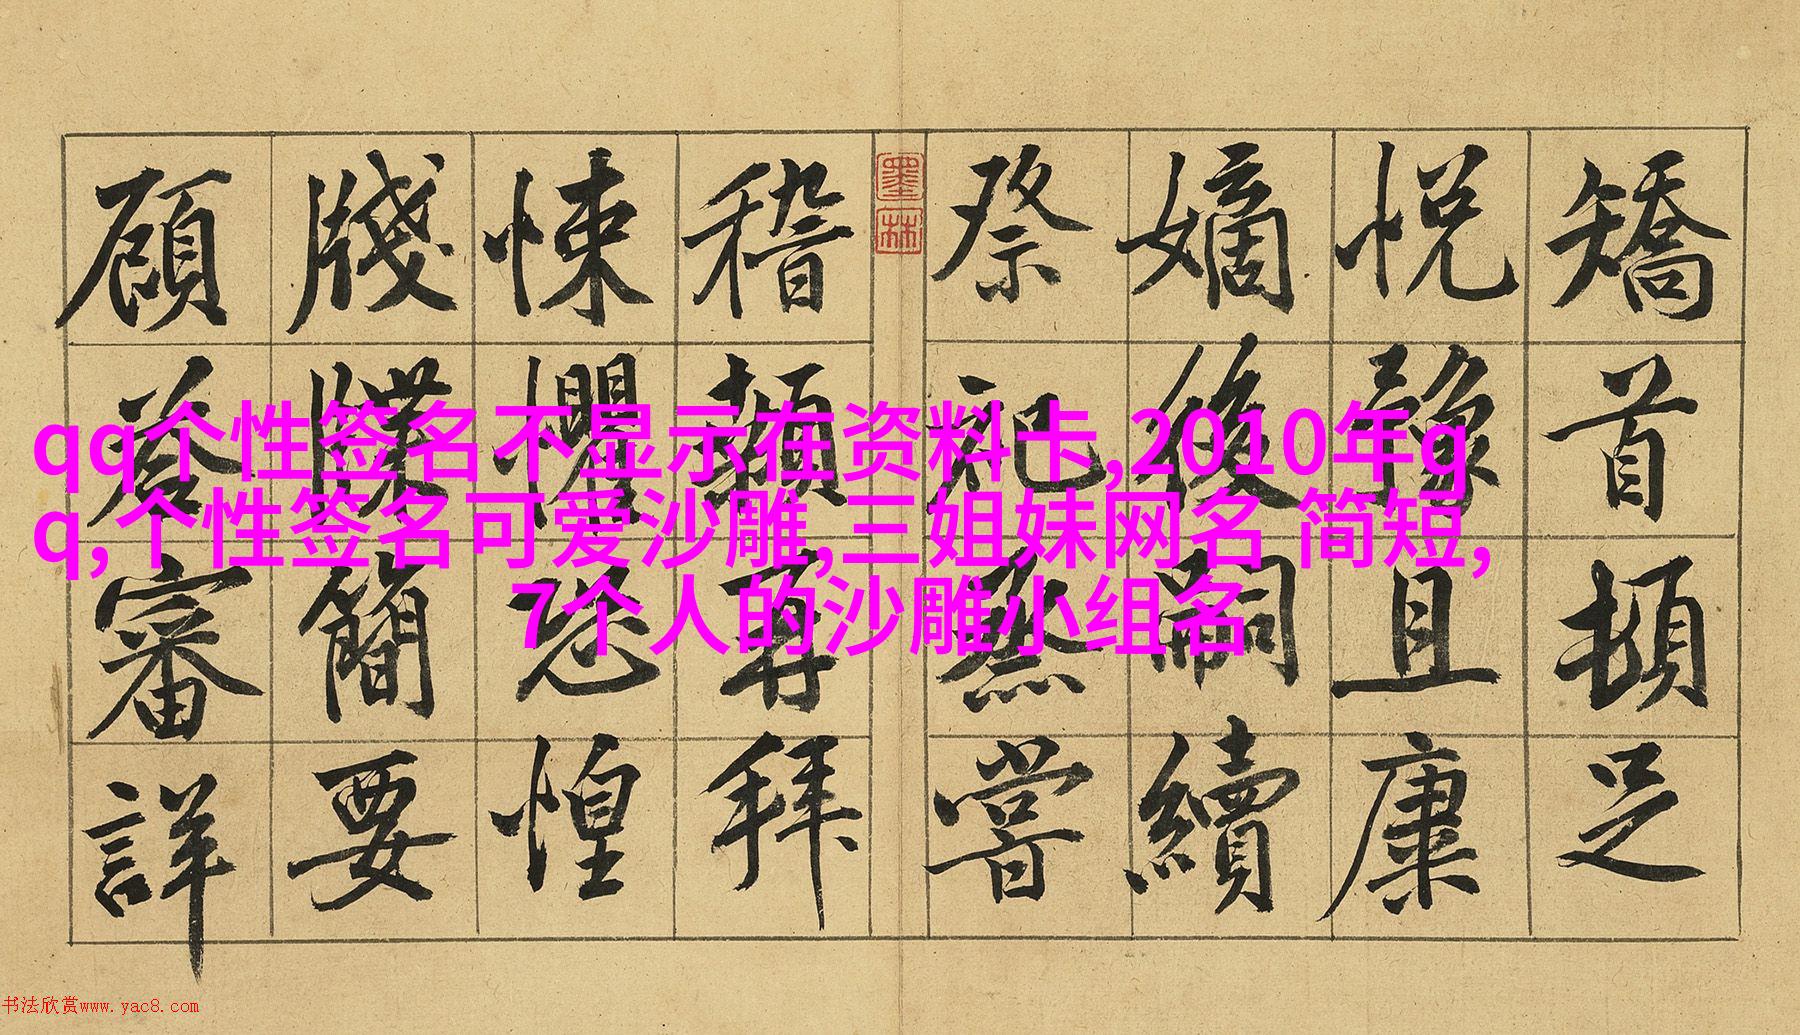 矯首頓足
悦豫且康
嫡後嗣續
祭祀蒸嘗
墨林
稽顙再拜
悚懼恐惶
牋牒簡要
顧答審詳
qq个性签名不显示在资料卡,2010年q
q,个性签名可爱沙雕,三姐妹网名 简短,
7个人的沙雕小组名
书法欣赏www.yac8.com